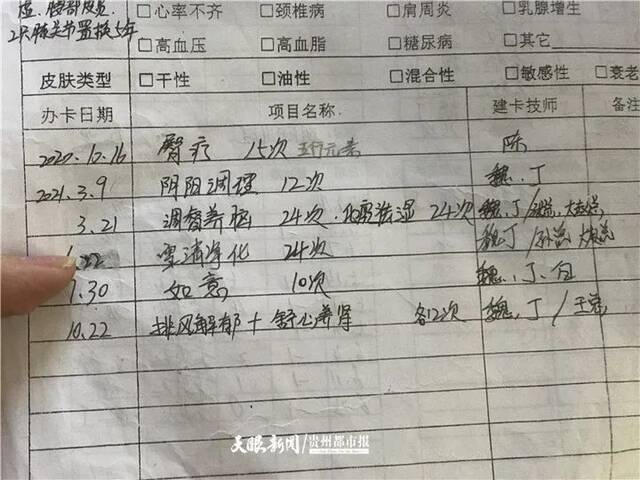 □心率不齐 □颈椎病 □肩周炎 □乳腺增生
□高血压 □高血脂 □糖尿病 □其它
皮肤类型 □干性 □油性 □混合性 □敏感性 □衰老
办卡日期 项目名称 建卡技师 备注
2020.12.16 臀疗 15次 陈
2021.3.9 阴阳调理 12次 魏、丁
3.21 调督养脑 24次 祛湿 24次 魏、丁
.22 净化 24次 魏丁
7.30 如意 10次 魏、丁、白
10.22 排风解郁+舒心养肾 各12次 魏、丁/王总
天眼新闻/贵州都市报